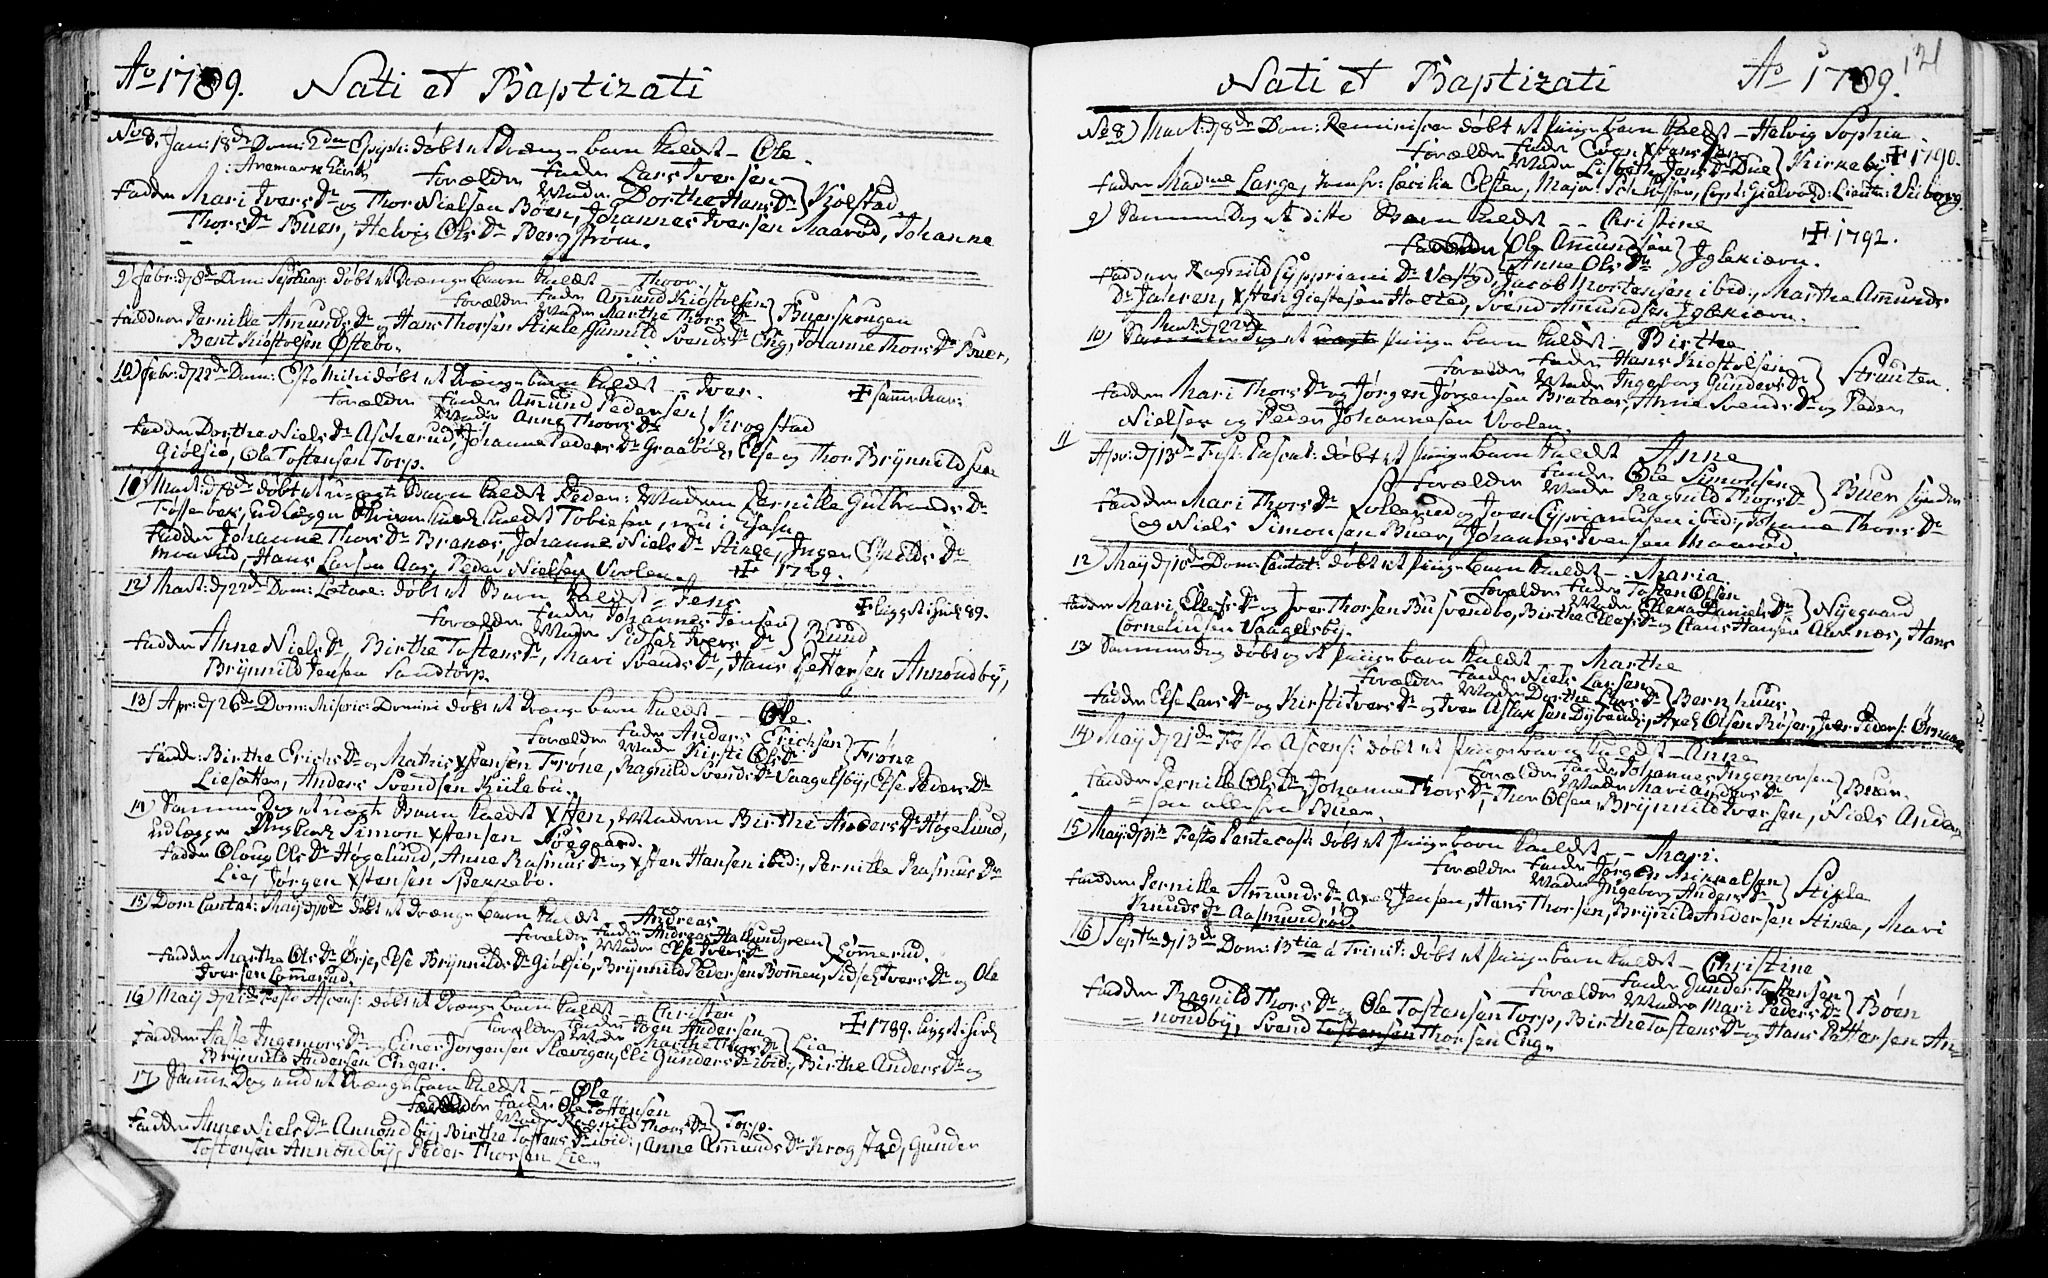 Ao 1789. Nati et Baptizati
No 8. Jan: 18de Dom: 2den Epiph: døbt et Drænge barn kaldt – Ole.
: Aremark Kirke Forældre Fader Lars Iversen
Moder Dorthe Hans Dr } Kolstad
Faddere Mari Ivers Dr og Thor Nielsen Bøen, Johannes Iversen Maarud, Johanne
Thors Dr Buer, Helvig Ols Dr Bergstrøm.
9) Febr: d 8de Dom: Septuag: døbt et Drænge barn kaldt – Thoor.
Forældre Fader Amund Kiøstelsen
Moder Marthe Thors Dr } Buerskougen
Faddere Pernille Amunds Dr og Hans Thorsen Stikle, Gunnild Svends Dr Eng, Johanne Thors Dr Buer,
Bent Kiøstelsen Østebø.
10) Febr: d 22de Dom: Esto Mihi døbt et Drænge barn kaldt – Iver. ✝ samme Aar:
Forældre Fader Amund Pedersen
Moder Anne Thoors Dr } Krogstad
Fadder Dorthe Niels Dr Ascherud, Johanne Peders Dr Graabøl, Else og Thor Brynnild
Giølsiø, Ole Tostensen Torp.
Mart: d 8de døbt et u-ægte Barn kaldt Peder: Moderen Pernille Gulbrands Dr
Tossebek, udlægger kaldet Tobiesen, nu i
Fadder Johanne Thors Dr Branæs, Johanne Niels Dr Stikle, Inger Dr
Hans Larsen Aas, Peder Nielsen Svolen. ✝ 1789.
12) Mart: d 22de Dom: Lætare: døbt et Barn kaldt – Jens ✝ 89.
Forældre Fader Johannes Jensen
Moder Sidsel Ivers Dr } Rund
Fadder Anne Niels Dr, Birthe Tostens Dr, Mari Svends Dr, Hans Pettersen Annondbÿ,
Brÿnnild Jensen Sandtorp.
13) Apr: d 26de Dom: Miseric: Domini døbt et Drænge barn kaldt – – Ole.
Forældre Fader Anders Erichsen
Moder Kirsti Ols Dr } Frøne
Fadd: Birthe Erichs Dr og Mathis Xstensen Frøne, Ragnild Svends Dr Vaagelsbÿ, Else Peders Dr
Liesætter, Anders Svendsen Kÿlebu.
14) Samme Dag et uægte Barn kaldt Xsten, Moderen Birthe Anders Dr Høgelund,
udlægger Ungkarl Simon Xstensen Soegaard.
Fadder Oloug Ols Dr Høgelund, Anne Rasmus Dr og Xsten Hansen ibid:, Pernille Rasmus Dr
Lie, Jørgen Xstensen Spekkebø.
15) Dom Cantat: Maÿ d 10de døbt et Drænge barn kaldt – Andreas
Forældre Fader Andreas Hallundgreen
Moder Else Ivers Dr } Lømmerud.
Fadder Marthe Ols Dr Ørje, Else Brÿnnilds Dr Giølsiø, Brÿnnild Pedersen Bommen, Sidsel Ivers Dr og Ole
Iversen Lommerud.
16) Maÿ d 21de Festo Ascens: døbt et Drænge barn kaldt – Christen
Forældre Fader Joen Andersen ✝ 1789.
Moder Marthe Thors Dr } Lia
Faddere Aaste Ingemors Dr og Einer Jørgensen Slævigen, Eli Gunders Dr ibid:, Birthe Anders Dr og
Brÿnnild Andersen Enger.
17) Samme Dag end et Drænge barn kaldt – – Ole
Forældre Fader Ole Tostensen
Moder Ragnild Thors Dr } Torp.
Fadder Anne Niels Dr Annondbÿ, Birthe Tostens Dr ibid:, Anne Amunds Dr Krogstad, Gunder
Tostensen Annondbÿ, Peder Thorsen Lie.
Nati et Baptizati Ao 1789. 121
No 8) Mart: d 8de Dom: Reminiscere døbt et Pinge barn kaldt – Helvig Sophia
Forældre Fader Even Hansen
Moder Lisbeth Jens Dr Due } Kirkebÿ ✝ 1790.
Fadder Madme Lange, Jomfr: Cæcilia Elster, Major Schiøtsen, Capt: Gielvold: Lieutn: Viborg.
9) Samme Dag et ditto Barn kaldt – Christine
Forældre { Ole Amundsen
Anne Ols Dr } Iglekiærn. ✝ 1792.
Faddere Ragnild Cÿpriani Dr Væstgd, Jacob Mortensen ibid:, Marthe Amunds
Dr Jahren, Xsten Giestesen Holsted, Svend Amundsen Iglekiærn.
Mart: d 22de
10) Samme Dag et uægte Pinge barn kaldt – Birthe
Forældre Fader Hans Kiøstelsen
Moder Ingeborg Gunders Dr } Strauten.
Fadder Mari Thors Dr og Jørgen Jørgensen Brataas, Anne Svends Dr og Peder
Nielsen og Peder Johannesen Svolen.
11 Apr: d 13de Fest: Pascat: døbt et Pinge barn kaldt Anne
Forældre Fader Ole Simonsen
Moder Ragnild Thors Dr } Buer Sÿndre
Fadder Mari Thors Dr Lollerud og Joen Cÿpriansen ibid:, Johanne Thors Dr
og Niels Simonsen Buer, Johannes Iversen Maarud.
12) Maÿ d 10de Dom: Cantat: døbt et Pinge barn kaldt – Maria
Forældre Fader Tosten Olsen
Moder Ellena Daniels Dr } Nÿegaard
Fadder Mari Ellefs Dr og Iver Thorsen Busvendbo, Birthe Ellefs Dr og Claus Hansen Aarnæs, Hans
Corneliusen Vaagelsbÿ.
13) Samme Dag døbt og et Pinge barn kaldt – Marthe
Forældre Fader Niels Larsen
Moder Dorthe Lars Dr } Bernhuus
Fadder Else Lars Dr og Kirsti Ivers Dr og Iver Aslaksen Dÿbendal, Axel Olsen Røser, Iver Peders: Ørnæs
14) Maÿ d 21de Festo Ascens: døbt et Pinge barn kaldt – Anne
Forældre Fader Johannes Ingemorsen
Moder Mari Anders Dr } Buer.
Fadder Pernille Ols Dr, Johanne Thors Dr, Thor Olsen, Brÿnnild Iversen, Niels Ander-
= sen alle fra Buer.
15) Maÿ d 31te Festo Pentecost: døbt et Pinge barn kaldt – – Mari.
Forældre Fader Jørgen Mikkelsen
Moder Ingeborg Anders Dr } Stikle
Faddere Pernille Amunds Dr Axel Jensen, Hans Thorsen, Brÿnild Andersen Stikle, Mari
Knuds Dr Aasmundrød.
16) Septbr d 13de Dom: 13tia á Trinit: døbt et Pinge barn kaldt – Christine
Forældre Fader Gunder Tostensen
Moder Mari Peders Dr } Bøen
Fadder Ragnild Thors Dr og Ole Tostensen Torp, Birthe Tostens Dr og Hans Pettersen An-
= nondbÿ, Svend Tostensen Thorsen Eng.